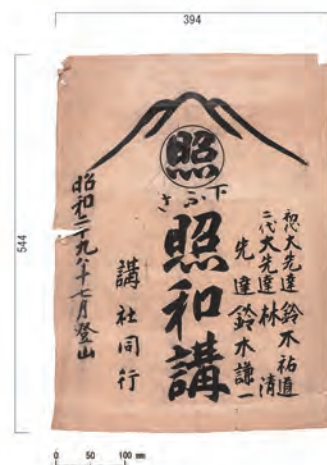 394
544
照
下ふさ
初代大先達 鈴木祐道
二代大先達 林 清
先達 鈴木謙一
照和講
講社同行
昭和二十九年七月登山
0 50 100 mm